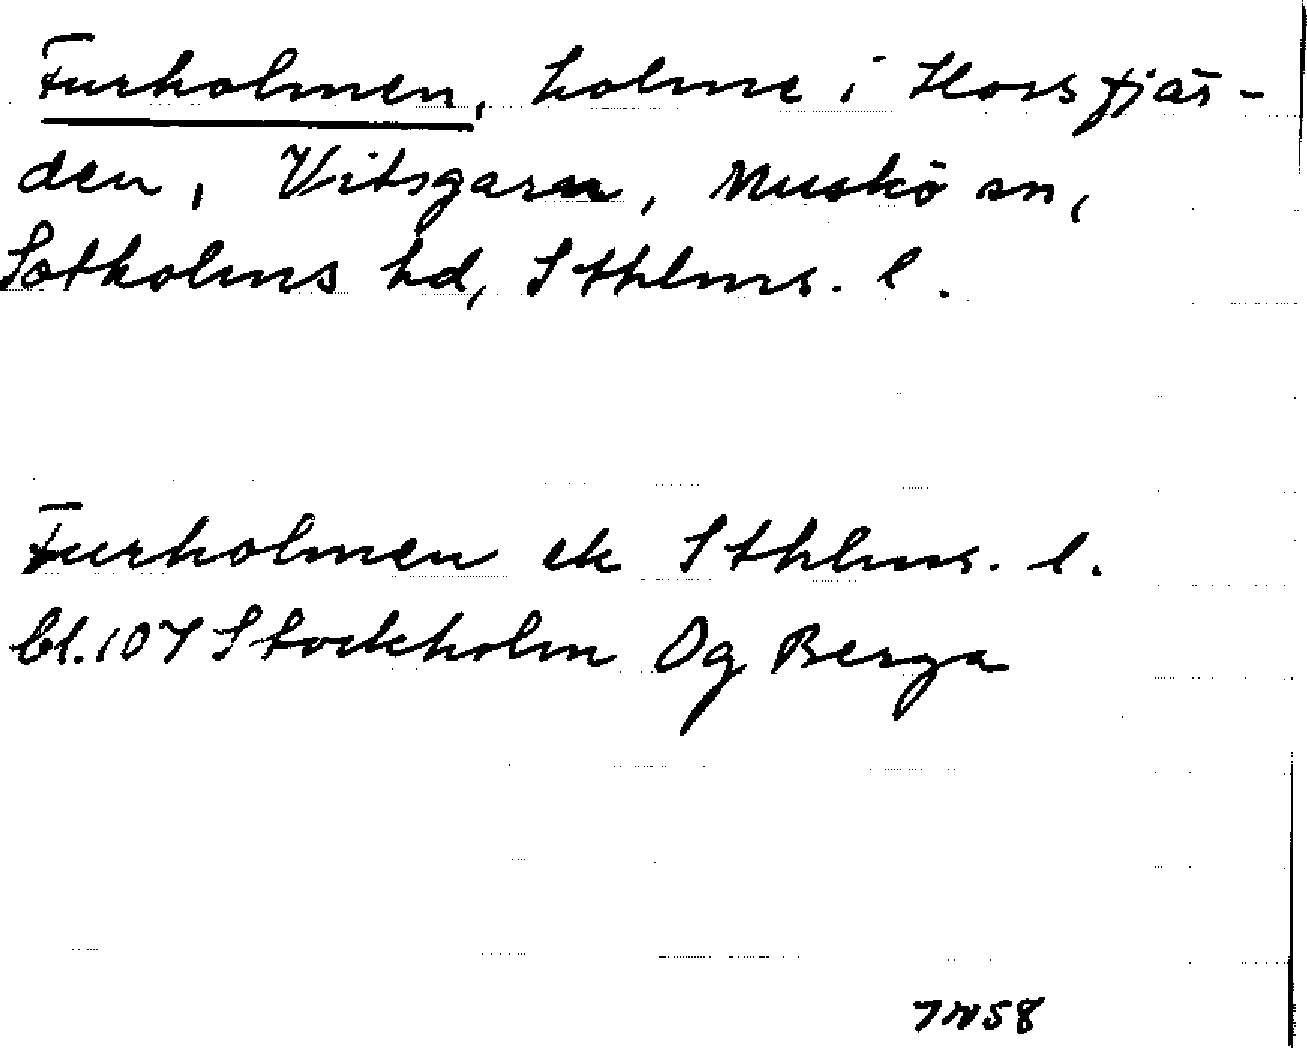 Furholmen, holme i Horsfjär-
den, Vitsgarn, Muskö sn,
Sotholms hd, Sthlms. l.
Furholmen ek Sthlms. l.
bl. 107 Stockholm Og Berga
58